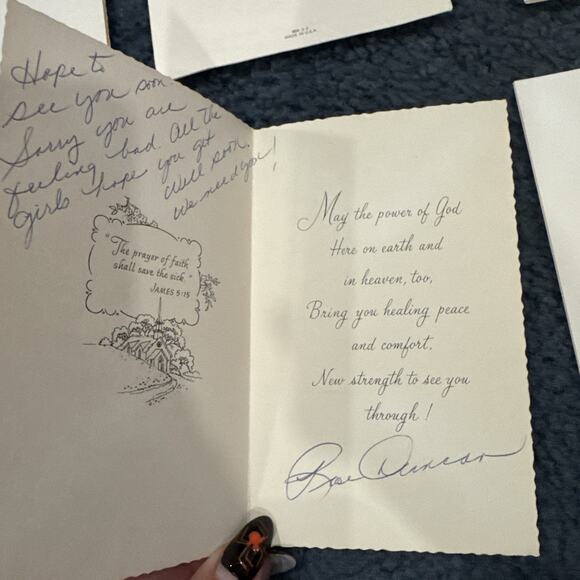 MADE IN U.S.A.
Hope to
see you soon.
Sorry you are
feeling bad. All the
girls hope you get
Well soon.
We need you!
"The prayer of faith
shall save the sick."
JAMES 5:15
May the power of God
Here on earth and
in heaven, too,
Bring you healing peace
and comfort,
New strength to see you
through!
Rose Duncan